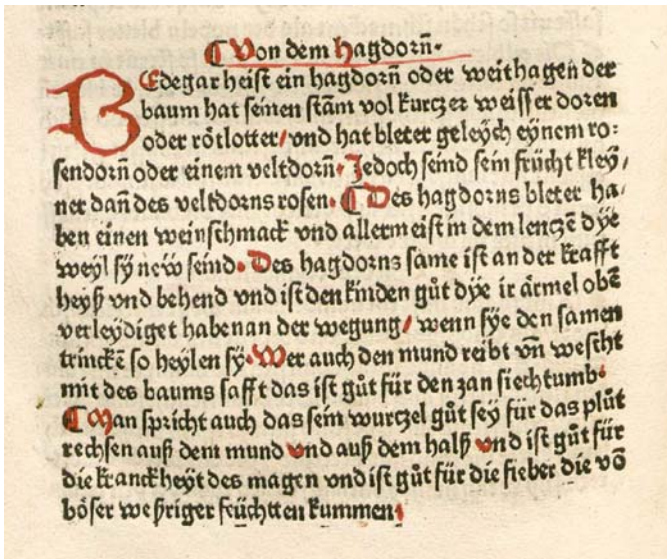 ¶ Von dem Hagdorn̄.
BEdegar heist ein hagdorn̄ oder weithagen der
baum hat seinen stām vol kurczer weisser doren
oder rötlotter/ vnd hat bleter geleych eynem ro:
sendorn̄ oder einem veltdorn̄. Jedoch seind sein frücht kley/
ner dan̄ des veltdorns rosen. ¶ Des hagdorns bleter ha/
ben einen weinschmack vnd allermeist in dem lenczē dÿe
weyl sÿ neẅ seind. Des hagdorns same ist an der krafft
heyß vnd behend vnd ist den kinden gůt dÿe ir ärmel obē
verleydiget haben an der wegung/ wenn sÿe den samen
trinckē so heylen sÿ. Wer auch den mund reibt vn̄ wescht
mit des baums safft das ist gůt für den zan siechtumb.
¶ Man spricht auch das sein wurczel gůt seÿ für das plůt
rechsen auß dem mund vnd auß dem halß vnd ist gůt für
die kranckheyt des magen vnd ist gůt für die fieber die vō
böser weßriger feüchtten kummen.